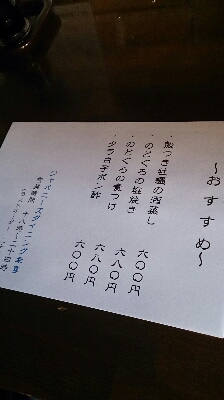 ～おすすめ～
・殻つき牡蠣の酒蒸し 六〇〇円
・のどぐろの塩焼き 六八〇円
・のどぐろの煮つけ 六八〇円
・タラ白子ポン酢 六〇〇円
ジャパニーズダイニング
営業時間 十八時～二十四時